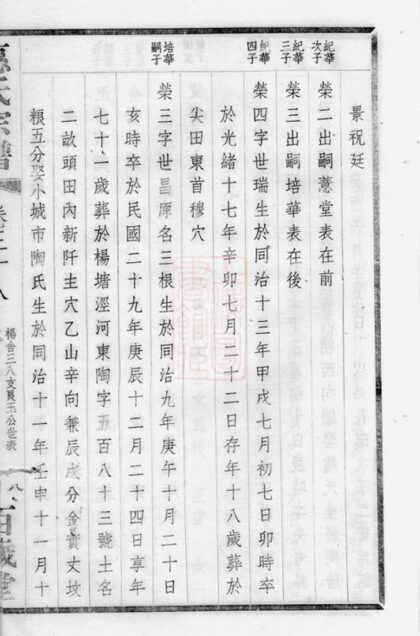 景祝廷
紀華次子
榮二出嗣薏堂表在前
紀華三子
榮三出嗣培華表在後
紀華四子
榮四字世瑞生於同治十三年甲戌七月初七日卯時卒
於光緒十七年辛卯七月二十二日存年十八歲葬於
尖田東首穆穴
培華嗣子
榮三字世昌原名三根生於同治九年庚午十月二十日
亥時卒於民國二十九年庚辰十二月二十四日享年
七十一歲葬於楊塘涇河東陶字五百八十三號土名
二畝頭田內新阡主穴乙山辛向兼辰戌分金實丈坟
糧五分娶小城市陶氏生於同治十一年壬申十一月十
氏宗譜
卷二十八
楊舍三八支良玉公世表
八
百歲堂